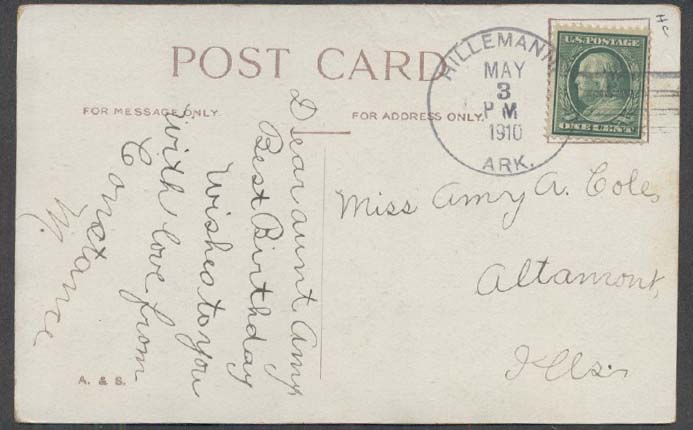 POST CARD
FOR MESSAGE ONLY.
FOR ADDRESS ONLY.
HILLEMANN
MAY
3
PM
1910
ARK.
U.S. POSTAGE
ONE CENT
HC
Dear aunt Amy
Best Birthday
Wishes to you
with love from
Miss Amy A. Coles
Altamont,
Ills.
A. & S.